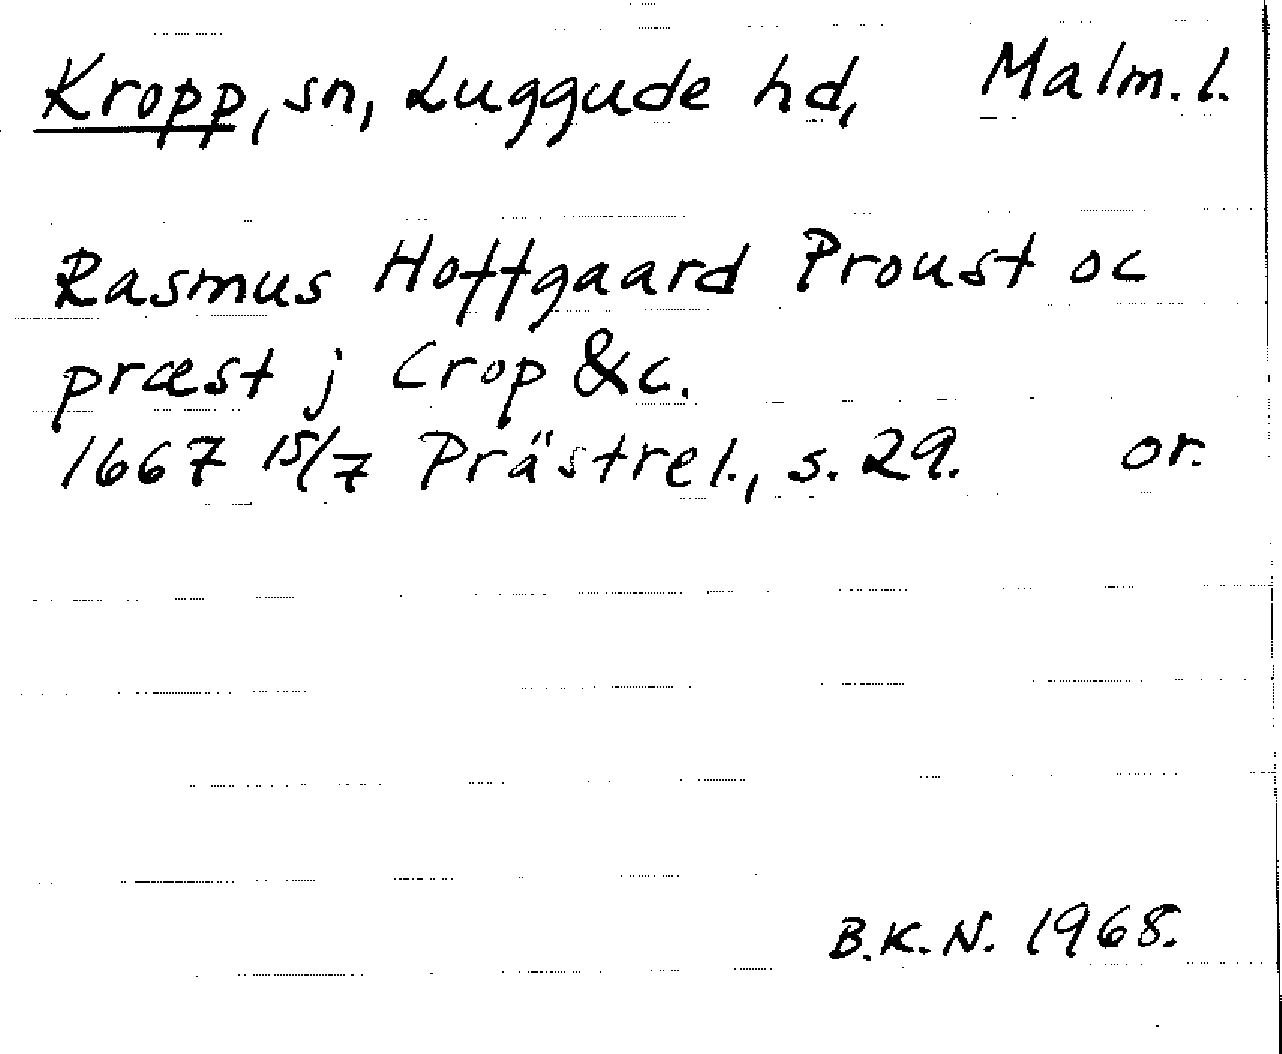 Kropp, sn, Luggude hd, Malm. l.
Rasmus Hoffgaard Proust oc
præst j Crop &c.
1667 15/7 Prästrel., s. 29. or.
B.K.N. 1968.